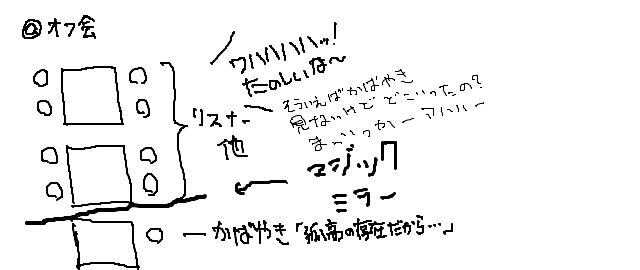 @オフ会
ワハハハハッ!
たのしいな〜
そういえばかばやき
見ないけどどこいったの?
まぁいっかーアハハー
リスナー
他
マジック
ミラー
かばやき「孤高の存在だから…」